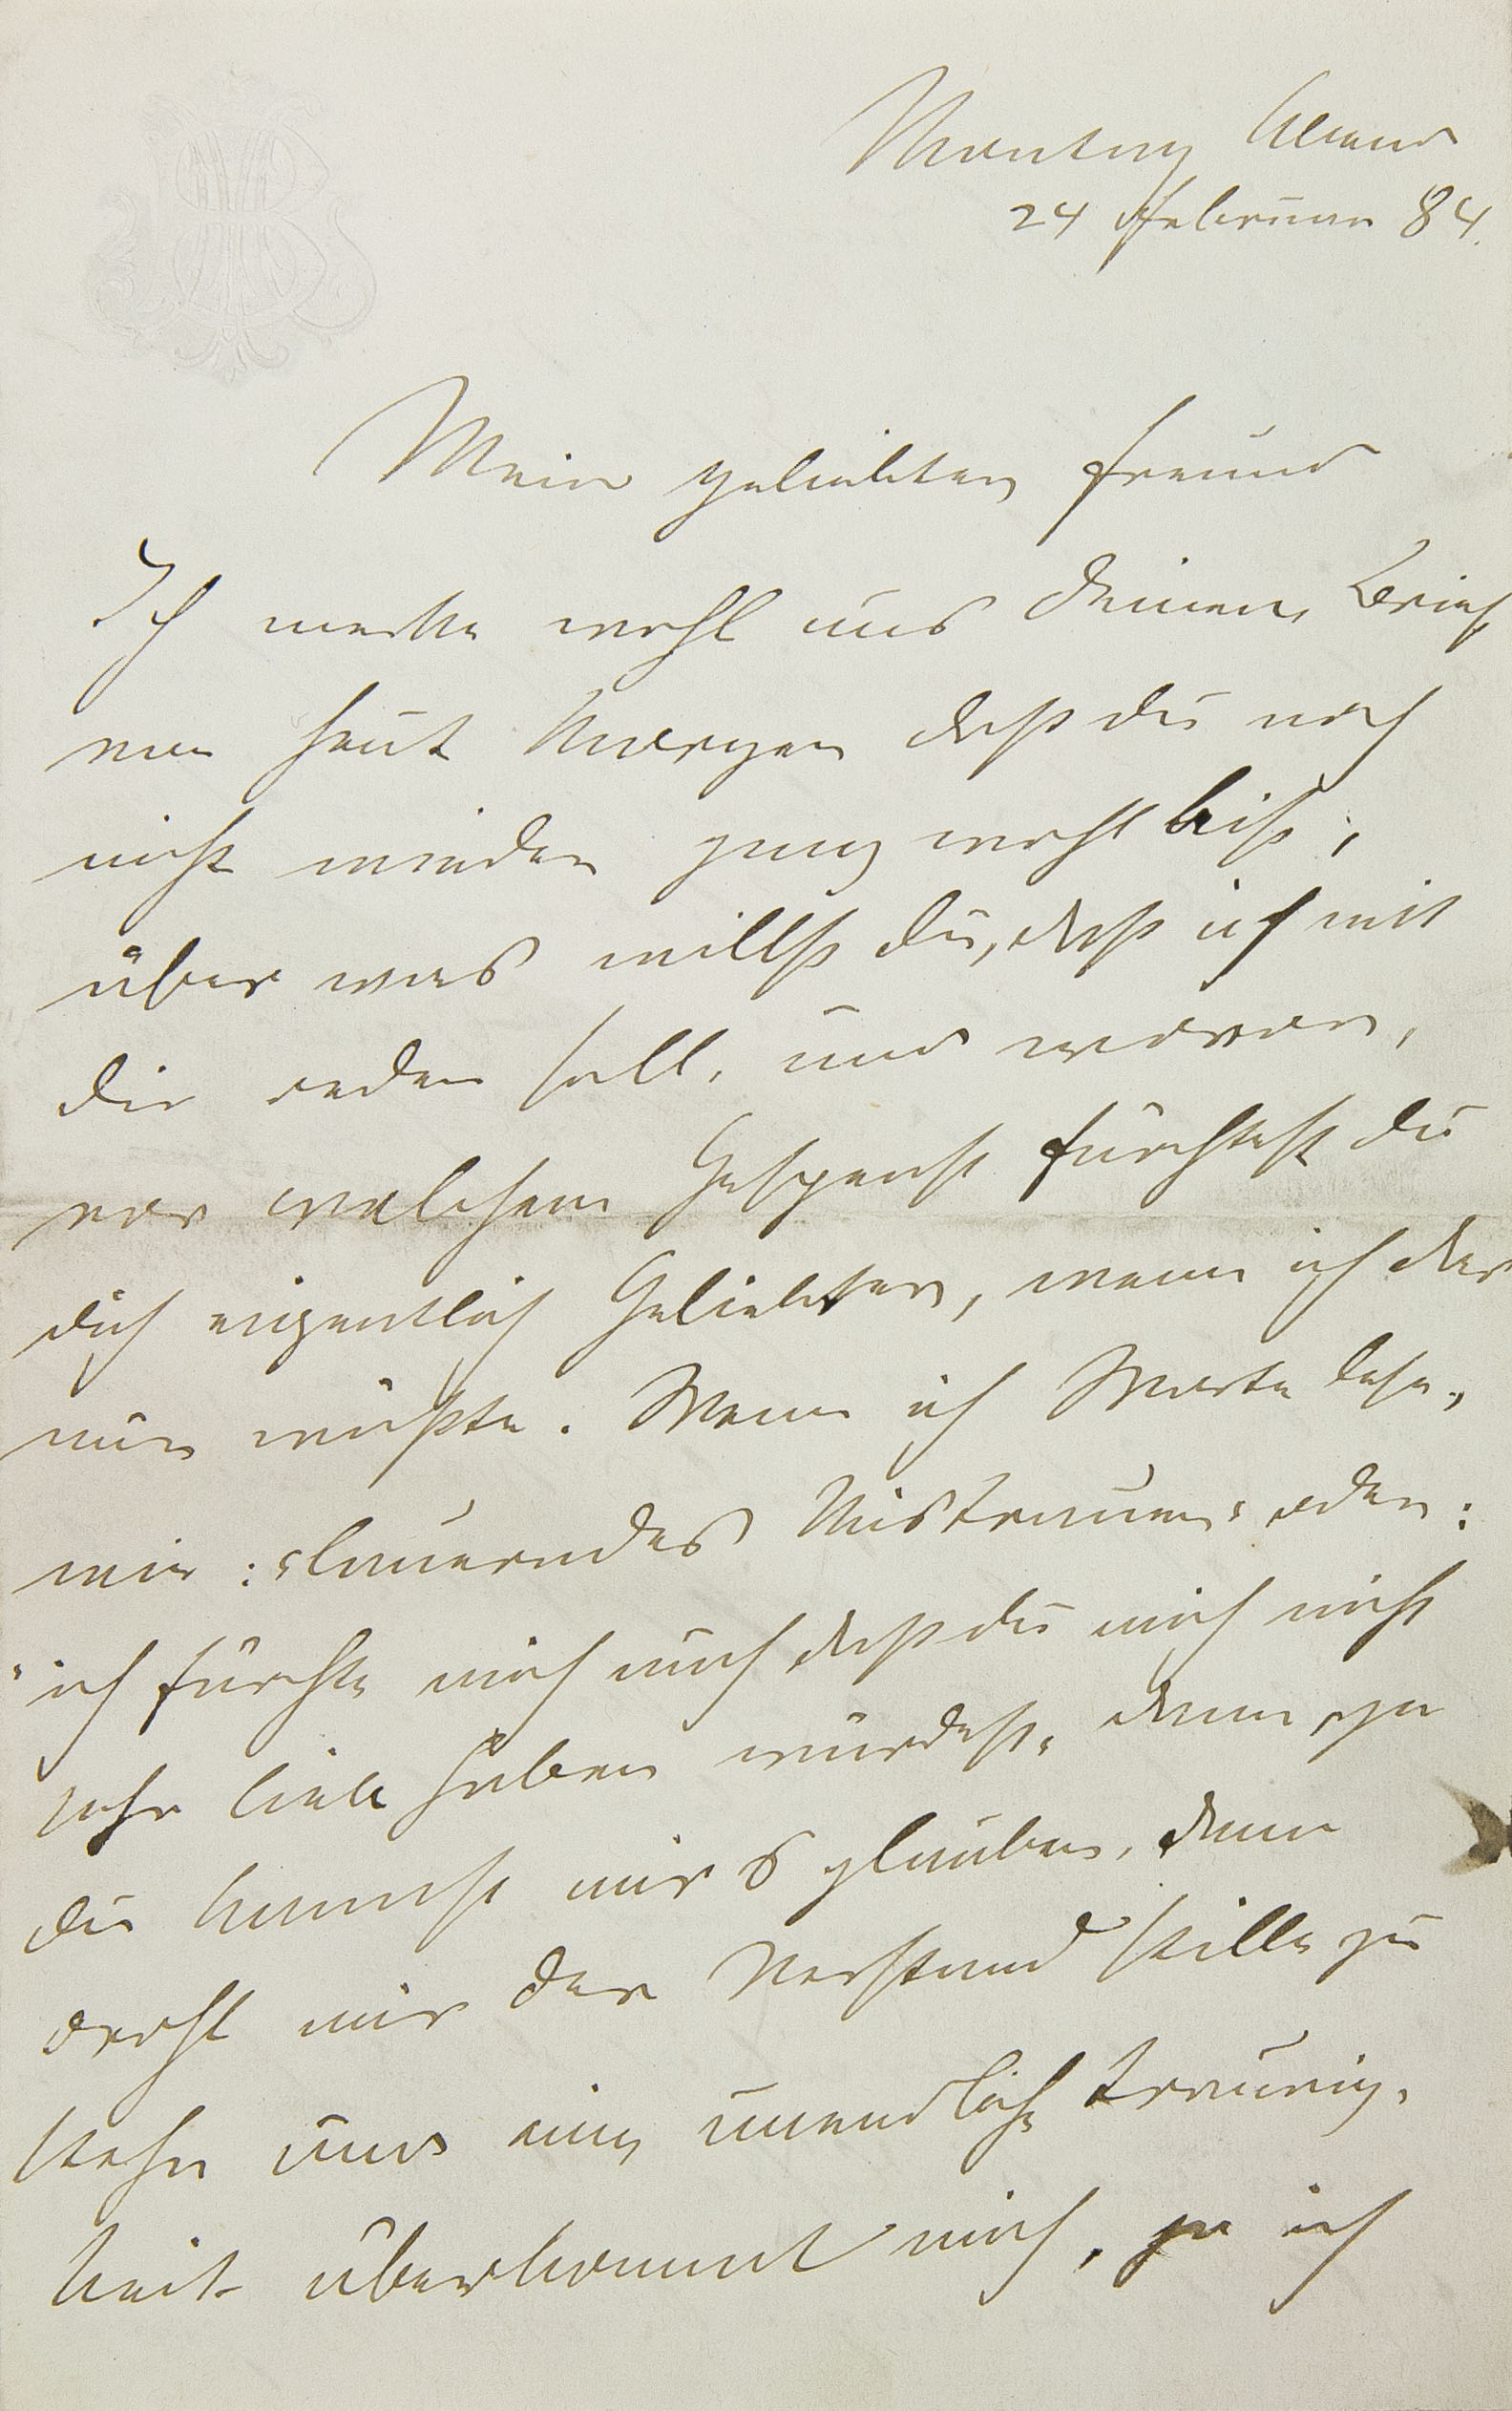 Montag Abend
24 Februar 84.
Mein geliebter Freund
Ich merke wohl aus deinem Brief
von heut Morgen daß du noch
nicht wieder ganz wohl bist,
über was willst du, daß ich mit
dir reden soll, und wovon,
vor welchem Gespenst fürchtest du
dich eigentlich Geliebter, wenn ich das
nur wüßte. Wenn ich Worte lese,
wie: "lauerndes Mistrauen" oder:
"ich fürchte mich auch daß du mich nicht
sehr lieb haben würdest" dann ja
du kannst mir's glauben, dann
droht mir der Verstand stille zu
stehn und eine unendliche Traurig-
keit überkommt mich, ja ich